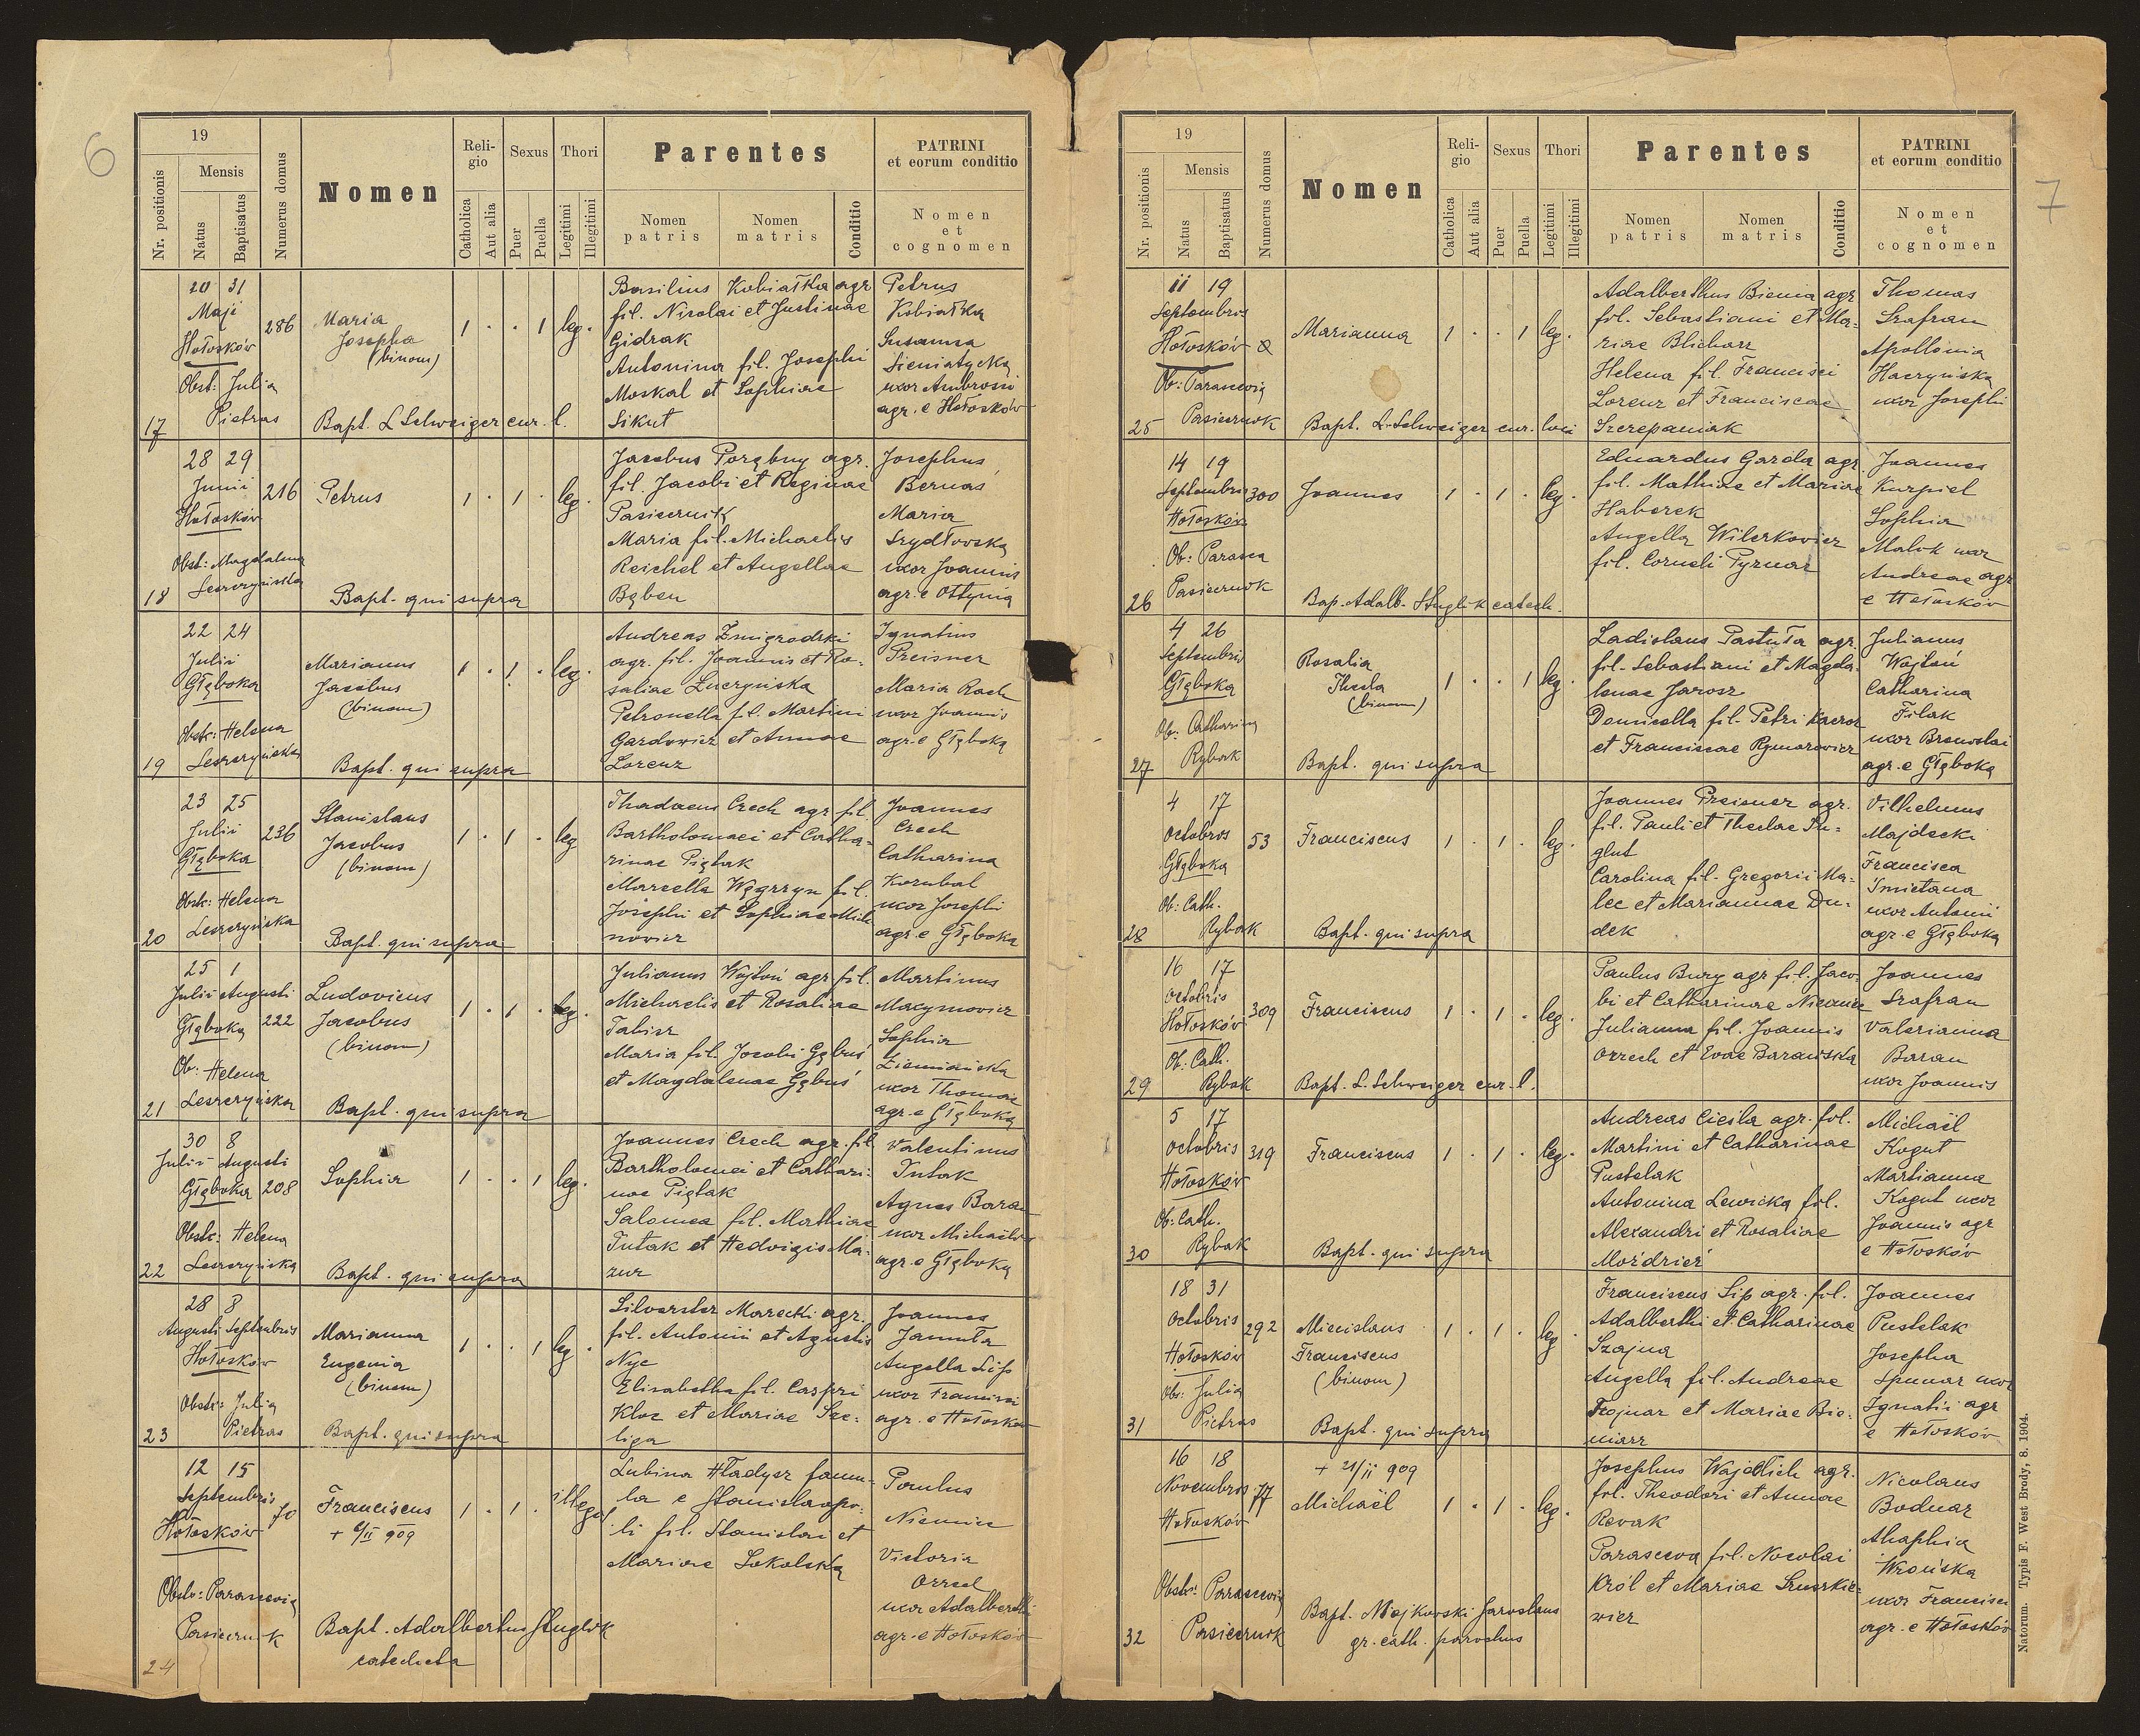 6
19
Nr. positionis
Mensis
Natus
Baptisatus
Numerus domus
Nomen
Reli-
gio
Catholica
Aut alia
Sexus
Puer
Puella
Thori
Legitimi
Illegitimi
Parentes
Nomen
patris
Nomen
matris
Conditio
PATRINI
et eorum conditio
Nomen
et
cognomen
20 31
Maji
Hołosków
286
Maria
Josepha
(binom)
1 . . 1 leg.
Obst: Julia
Pietras
17
Bapt. L Schweiger cur. l.
Basilius Kobiałka agr
fil. Nicolai et Justinae
Gidrak
Antonina fil. Josephi
Moskal et Sophiae
Sikut
Petrus
Kobiałka
Susanna
Sieniatycka
uxor Ambrosii
agr. e Hołosków
28 29
Junii
Hołosków
216
Petrus
1 . 1 . leg.
Obst: Magdalena
Leszczyńska
18
Bapt. qui supra
Jacobus Porębny agr.
fil. Jacobi et Reginae
Pasiecznik
Maria fil. Michaelis
Reichel et Angellae
Bęben
Josephus
Bernas
Maria
Szydłowska
uxor Joannis
agr. e Ottynia
22 24
Julii
Głęboka
Marianus
Jacobus
(binom)
1 . 1 . leg.
Obst: Helena
Leszczyńska
19
Bapt. qui supra
Andreas Zmigrodzki
agr. fil. Joannis et Ro-
saliae Łuczyńska
Petronella fil. Martini
Gardowicz et Annae
Lorenz
Ignatius
Preisner
Maria Rach
uxor Joannis
agr. e Głęboka
23 25
Julii
Głęboka
236
Stanislaus
Jacobus
(binom)
1 . 1 . leg
Obst: Helena
Leszczyńska
20
Bapt. qui supra
Thadaeus Czech agr. fil.
Bartholomaei et Catha-
rinae Piętak
Marcella Węgrzyn fil.
Josephi et Sophiae Mich
nowicz
Joannes
Czech
Catharina
Kornbal
uxor Josephi
agr. e Głęboka
25 1
Julii Augusti
Głęboka
222
Ludovicus
Jacobus
(binom)
1 . 1 . leg.
Ob: Helena
Leszczyńska
21
Bapt. qui supra
Julianus Wojtoń agr. fil.
Michaelis et Rosaliae
Tabisz
Maria fil. Jacobi Gębuś
et Magdalenae Gębuś
Martinus
Maxymowicz
Sophia
Ziemiańska
uxor Thomae
agr. e Głęboka
30 8
Julii Augusti
Głęboka
208
Sophia
1 . . 1 leg.
Obst: Helena
Leszczyńska
22
Bapt. qui supra
Joannes Czech agr. fil
Bartholomei et Cathari-
nae Piętak
Salomea fil. Mathiae
Tutak et Hedvigis Ma-
zur
Valentinus
Tutak
Agnes Baran
uxor Michaëlis
agr. e Głęboka
28 8
Augusti Septembris
Hołosków
Marianna
Eugenia
(binom)
1 . . 1 leg.
Obst: Julia
Pietras
23
Bapt. qui supra
Silvester Marecki agr.
fil. Antonii et Agnetis
Nyc
Elisabetha fil. Caspri
Kloc et Mariae Sze-
liga
Joannes
Jamuła
Angella Lip
uxor Francisci
agr. e Hołosków
12 15
Septembris
Hołosków
70
Franciscus
+ 6/II 909
1 . 1 . illeg.
Obst: Parascevia
Pasiecznik
24
Bapt. Adalbertus Stuglik
catecheta
Lubina Hładysz famu-
la e Stanislaopo-
li fil. Stanislai et
Mariae Sokolska
Paulus
Niemiec
Victoria
Orzech
uxor Adalberthi
agr. e Hołosków
7
19
Nr. positionis
Mensis
Natus
Baptisatus
Numerus domus
Nomen
Reli-
gio
Catholica
Aut alia
Sexus
Puer
Puella
Thori
Legitimi
Illegitimi
Parentes
Nomen
patris
Nomen
matris
Conditio
PATRINI
et eorum conditio
Nomen
et
cognomen
11 19
Septembris
Hołosków
Marianna
1 . . 1 leg.
Ob: Parascevia
Pasiecznik
25
Bapt. L. Schweiger cur. loci
Adalberthus Bienia agr
fil. Sebastiani et Ma-
riae Blicharz
Helena fil. Francisci
Lorenz et Franciscae
Szczepaniak
Thomas
Szafran
Apollonia
Haczyńska
uxor Josephi
14 19
Septembris
Hołosków
300
Joannes
1 . 1 . leg.
Ob: Parasca
Pasiecznik
26
Bap. Adalb. Stuglik catech.
Eduardus Garda agr.
fil. Mathiae et Mariae
Haberek
Angella Wilczkowicz
fil. Corneli Pyznar
Joannes
Kurpiel
Sophia
Malek uxor
Andreae agr
e Hołosków
4 26
Septembris
Głęboka
Rosalia
Thecla
(binom)
1 . . 1 leg.
Ob: Catharina
Rybak
27
Bapt. qui supra
Ladislaus Pastuła agr.
fil. Sebastiani et Magda-
lenae Jarosz
Demicella fil. Petri Kaczor
et Franciscae Rymarowicz
Julianus
Wojtoń
Catharina
Filak
uxor Bronislai
agr. e Głęboka
4 17
Octobris
Głęboka
53
Franciscus
1 . 1 . leg.
Ob: Cath.
Rybak
28
Bapt. qui supra
Joannes Preisner agr.
fil. Pauli et Theclae Szu-
glut
Carolina fil. Gregorii Ma-
lec et Mariannae Du-
dek
Vilhelmus
Majdecki
Francisca
Śmietana
uxor Antonii
agr. e Głęboka
16 17
Octobris
Hołosków
309
Franciscus
1 . 1 . leg.
Ob: Cath.
Rybak
29
Bapt. L. Schweiger cur. l.
Paulus Bury agr fil. Jaco-
bi et Catharinae
Julianna fil. Joannis
Orzech et Evae Barańska
Joannes
Szafran
Valerianna
Baran
uxor Joannis
5 17
Octobris
Hołosków
319
Franciscus
1 . 1 . leg.
Ob: Cath.
Rybak
30
Bapt. qui supra
Andreas Cieśla agr. fil.
Martini et Catharinae
Pustelak
Antonina Lewicka fil.
Alexandri et Rosaliae
Moździeż
Michaël
Kogut
Martianna
Kogut uxor
Joannis agr
e Hołosków
18 31
Octobris
Hołosków
292
Miecislaus
Franciscus
(binom)
1 . 1 . leg.
Ob: Julia
Pietras
31
Bapt. qui supra
Franciscus Lip agr. fil.
Adalberthi et Catharinae
Szajna
Angella fil. Andreae
Trojnar et Mariae Bie-
niarz
Joannes
Pustelak
Josepha
Spunar uxor
Ignatii agr
e Hołosków
16 18
Novembris
Hołosków
77
+ 21/II 909
Michaël
1 . 1 . leg.
Obst: Parascevia
Pasiecznik
32
Bapt. Majkowski Jaroslaus
gr. cath. parochus
Josephus Wajdlich agr.
fil. Theodori et Annae
Rewak
Parasceva fil. Nicolai
Król et Mariae Szuszkie-
wicz
Nicolaus
Bodnar
Ahaphia
Wrońska
uxor Francisci
agr. e Hołosków
Natorum. Typis F. West Brody, 8. 1904.